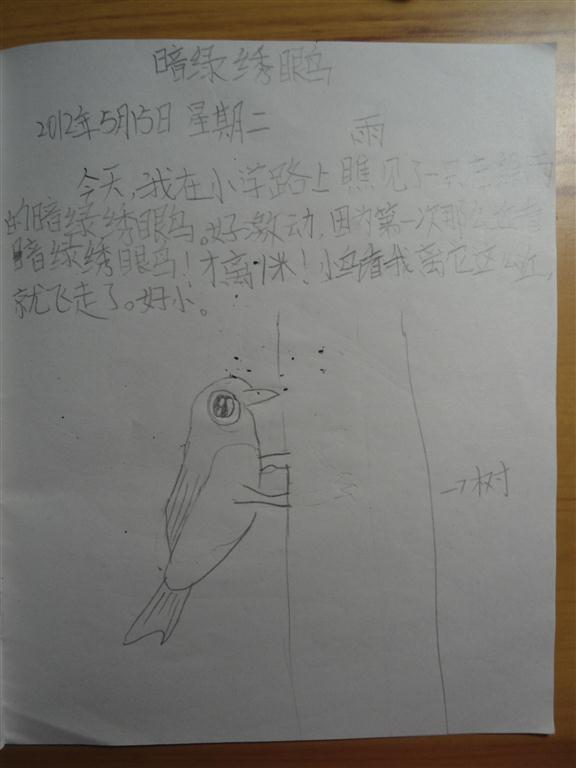 暗绿绣眼鸟
2012年5月15日 星期二 雨
今天,我在小学路上瞧见了一只
的暗绿绣眼鸟。好激动,因为第一次那么近看
暗绿绣眼鸟!才离1米!小鸟看我离它这么近,
就飞走了。好小。
→树